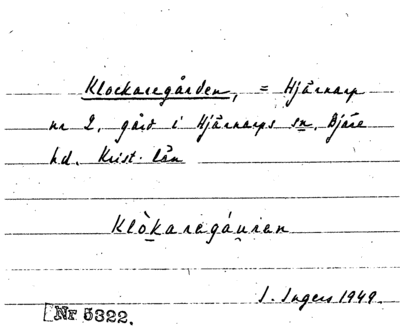 Klockaregården, = Hjärnarp
nr 2, gård i Hjärnarps sn, Bjäre
hd. Krist. län
Klòkaregáu̯ren
I. Ingers 1949.
Nr 5322.